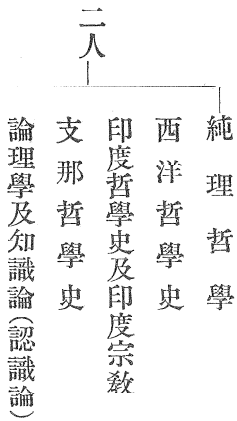 二人
純理哲學
西洋哲學史
印度哲學史及印度宗教
支那哲學史
論理學及知識論(認識論)